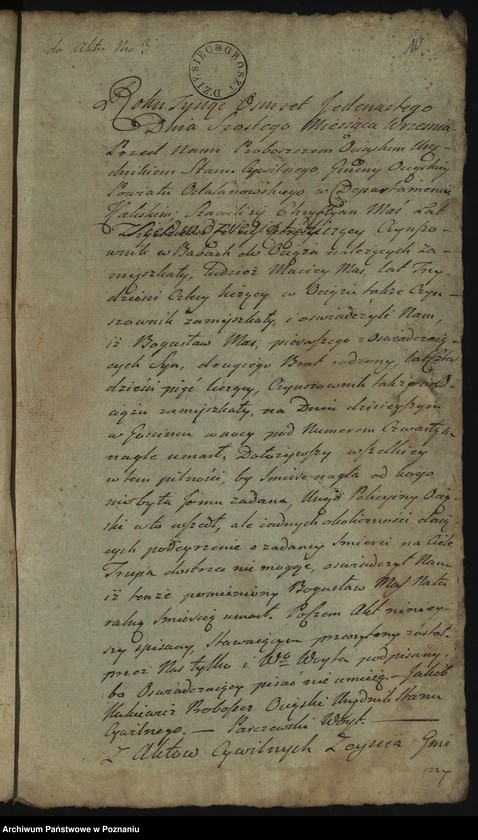 do Aktu Nro 3
10.
DZIESIĘC GROSZI
Roku Tysiąc Osmset Jedenastego
Dnia Szostego Miesiąca Wrzesnia
Przed Nami Proboszczem Ociąskim Urzę-
dnikiem Stanu Cywilnego, Gminy Ociąskiey
Powiatu Odolanowskiego w Departamencie
Kaliskim, Stawili się Chrystyan Maś Lat
liczący Czynszo-
wnik w Babach do Ociąża należących za-
mięszkały, tudzież Maciey Maś, lat Trzy-
dzieści Cztery liczący w Ociążu także Czyn-
szownik zamięszkały, i oświadczyli Nam,
iż Bogusław Maś, pierwszego z oświadczaią-
cych Syn, drugiego Brat rodzony, lat
dzieści pięć liczący, Czynszownik także w O-
ciążu zamięszkały, na Dniu dzisieyszym
w Goscincu w nocy pod Numerem Czwartym
nagle umarł. Dołożywszy wszelkiey
w tem pilności, by śmierć nagła od kogo
nie była jemu zadaną, Urząd Policyiny Ocią-
ski w to wszedł, ale żadnych okoliczności
cych podeyrzenie o zadaney śmierci na Ciele
Trupa dostrzec nie mogąc, oświadczył Nam
iż tenże pomieniony Bogusław Maś Natu
ralną śmiercią umarł. Poczem Akt ninieys-
szy spisany, Stawaiącym przeczytany został.
przez Nas tylko i Wo Woyta podpisany.
bo Oświadczaiący pisać nie umieią. Jakob
Proboszcz Ociąski Urzędnik Stanu
Cywilnego. — Parczewski Woyt. —
Z Aktow Cywilnych Zeyscia Gmi
ny
Archiwum Państwowe w Poznaniu